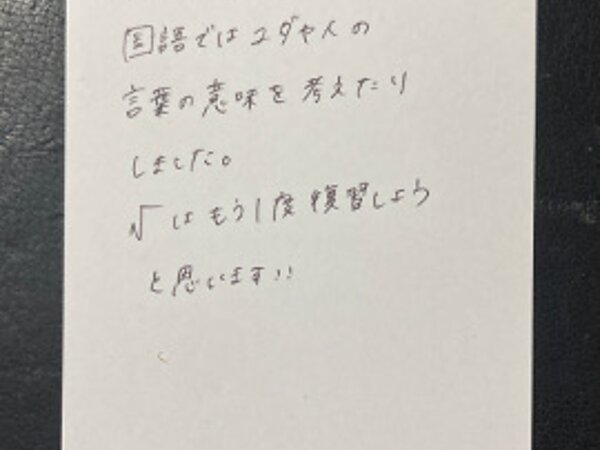 国語ではユダヤ人の
言葉の意味を考えたり
しました。
√はもう1度復習しよう
と思います!!